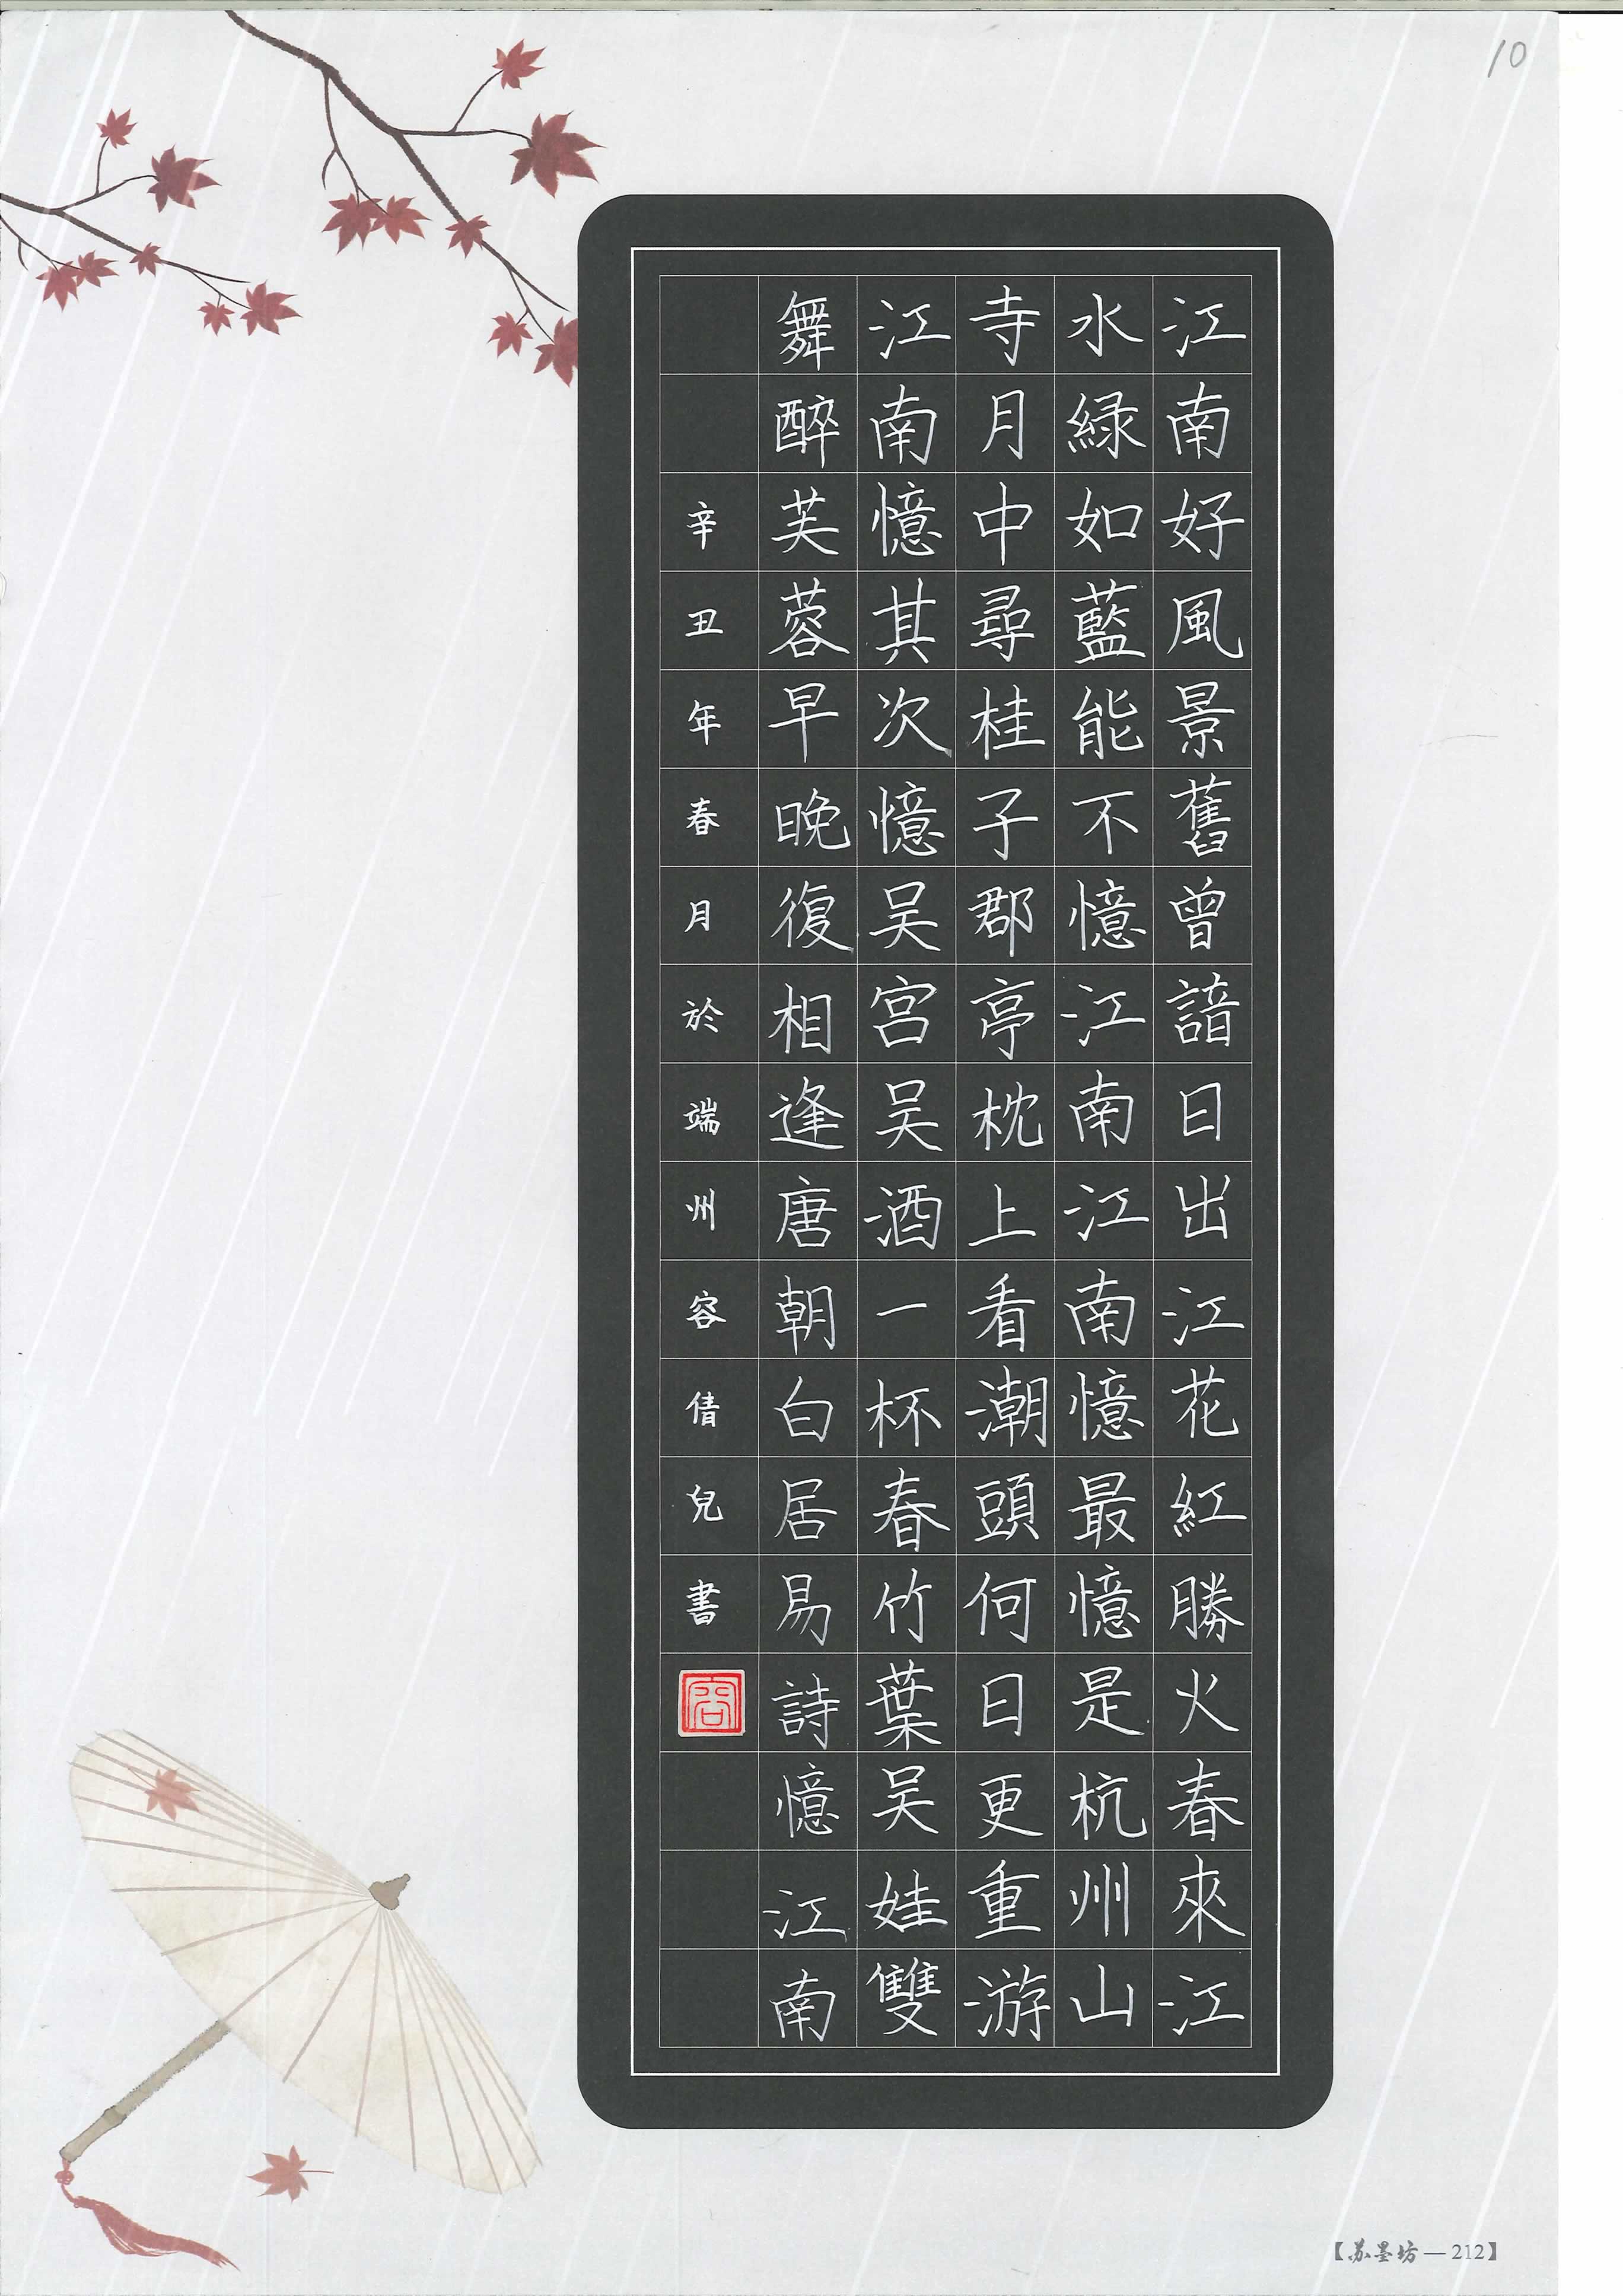 10
江南好風景舊曾諳日出江花紅勝火春來江
水緑如藍能不憶江南江南憶最憶是杭州山
寺月中尋桂子郡亭枕上看潮頭何日更重游
江南憶其次憶吴宫吴酒一杯春竹葉吴娃雙
舞醉芙蓉早晚復相逢唐朝白居易詩憶江南
辛丑年春月於端州容倩兒書
容
【苏墨坊—212】